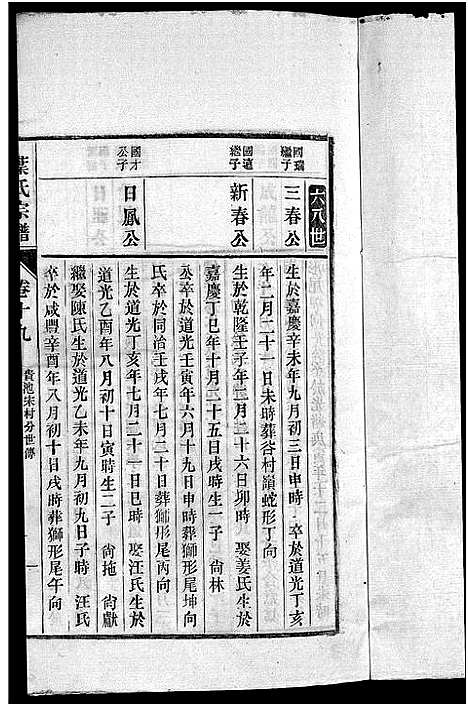 六八世
國瑞
繼子
三春公
生於嘉慶辛未年九月初三日申時 卒於道光丁亥
年二月二十一日未時葬谷村嶺蛇形丁向
國道
繼子
新春公
生於乾隆壬子年二月二十六日卯時 娶姜氏生於
嘉慶丁巳年十月二十五日戌時生一子 尙林
丞卒於道光壬寅年六月十九日申時葬獅形尾坤向
氏卒於同治壬戌年七月二十日葬獅形尾丙向
國才
公子
日鳳公
生於道光丁亥年七月二十一日巳時 娶汪氏生於
道光乙酉年八月初十日寅時生二子 尙拖 尙獻
繼娶陳氏生於道光乙未年九月初九日子時 汪氏
卒於咸豐辛酉年八月初十日戌時葬獅形尾午向
葉氏宗譜
卷十九
貴池宋村分世傳
一